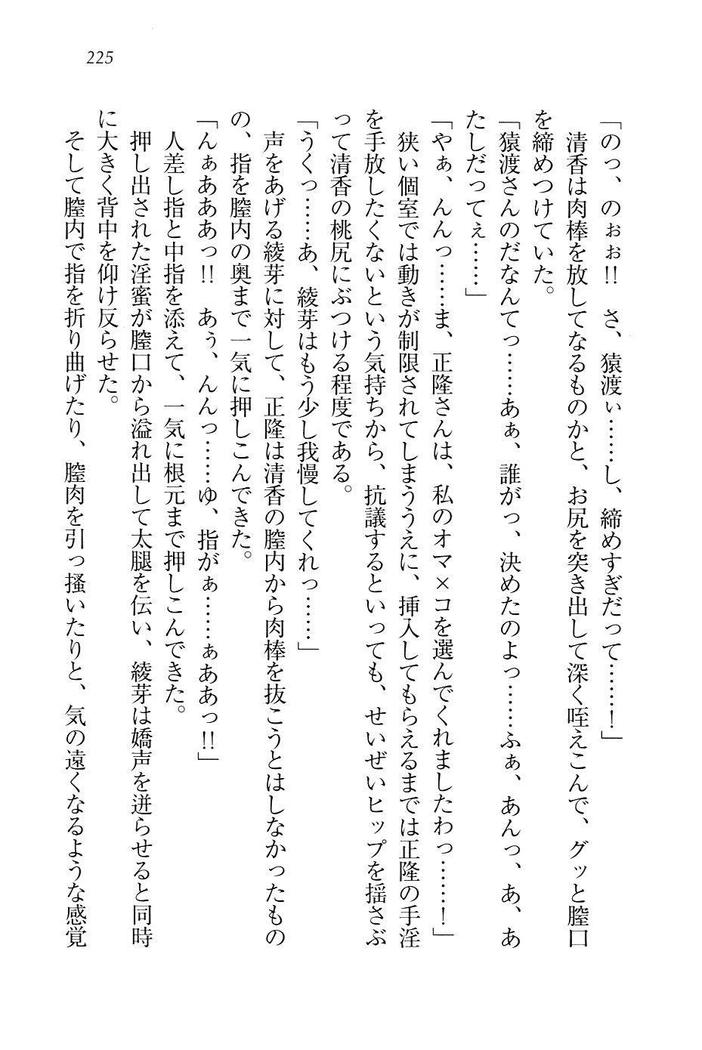 225
「のっ、のぉぉ!!　さ、猿渡ぃ……し、締めすぎだって……！」
清香は肉棒を放してなるものかと、お尻を突き出して深く咥えこんで、グッと膣口
を締めつけていた。
「猿渡さんのだなんてっ……あぁ、誰がっ、決めたのよっ……ふぁ、あんっ、あ、あ
たしだってぇ……」
「やぁ、んんっ……ま、正隆さんは、私のオマ×コを選んでくれましたわっ……！」
狭い個室では動きが制限されてしまううえに、挿入してもらえるまでは正隆の手淫
を手放したくないという気持ちから、抗議するといっても、せいぜいヒップを揺さぶ
って清香の桃尻にぶつける程度である。
「うくっ……あ、綾芽はもう少し我慢してくれっ……」
声をあげる綾芽に対して、正隆は清香の膣内から肉棒を抜こうとはしなかったもの
の、指を膣内の奥まで一気に押しこんできた。
「んぁあああっ!!　あぅ、んんっ……ゆ、指がぁ……ぁああっ!!」
人差し指と中指を添えて、一気に根元まで押しこんできた。
押し出された淫蜜が膣口から溢れ出して太腿を伝い、綾芽は嬌声を迸らせると同時
に大きく背中を仰け反らせた。
そして膣内で指を折り曲げたり、膣肉を引っ掻いたりと、気の遠くなるような感覚